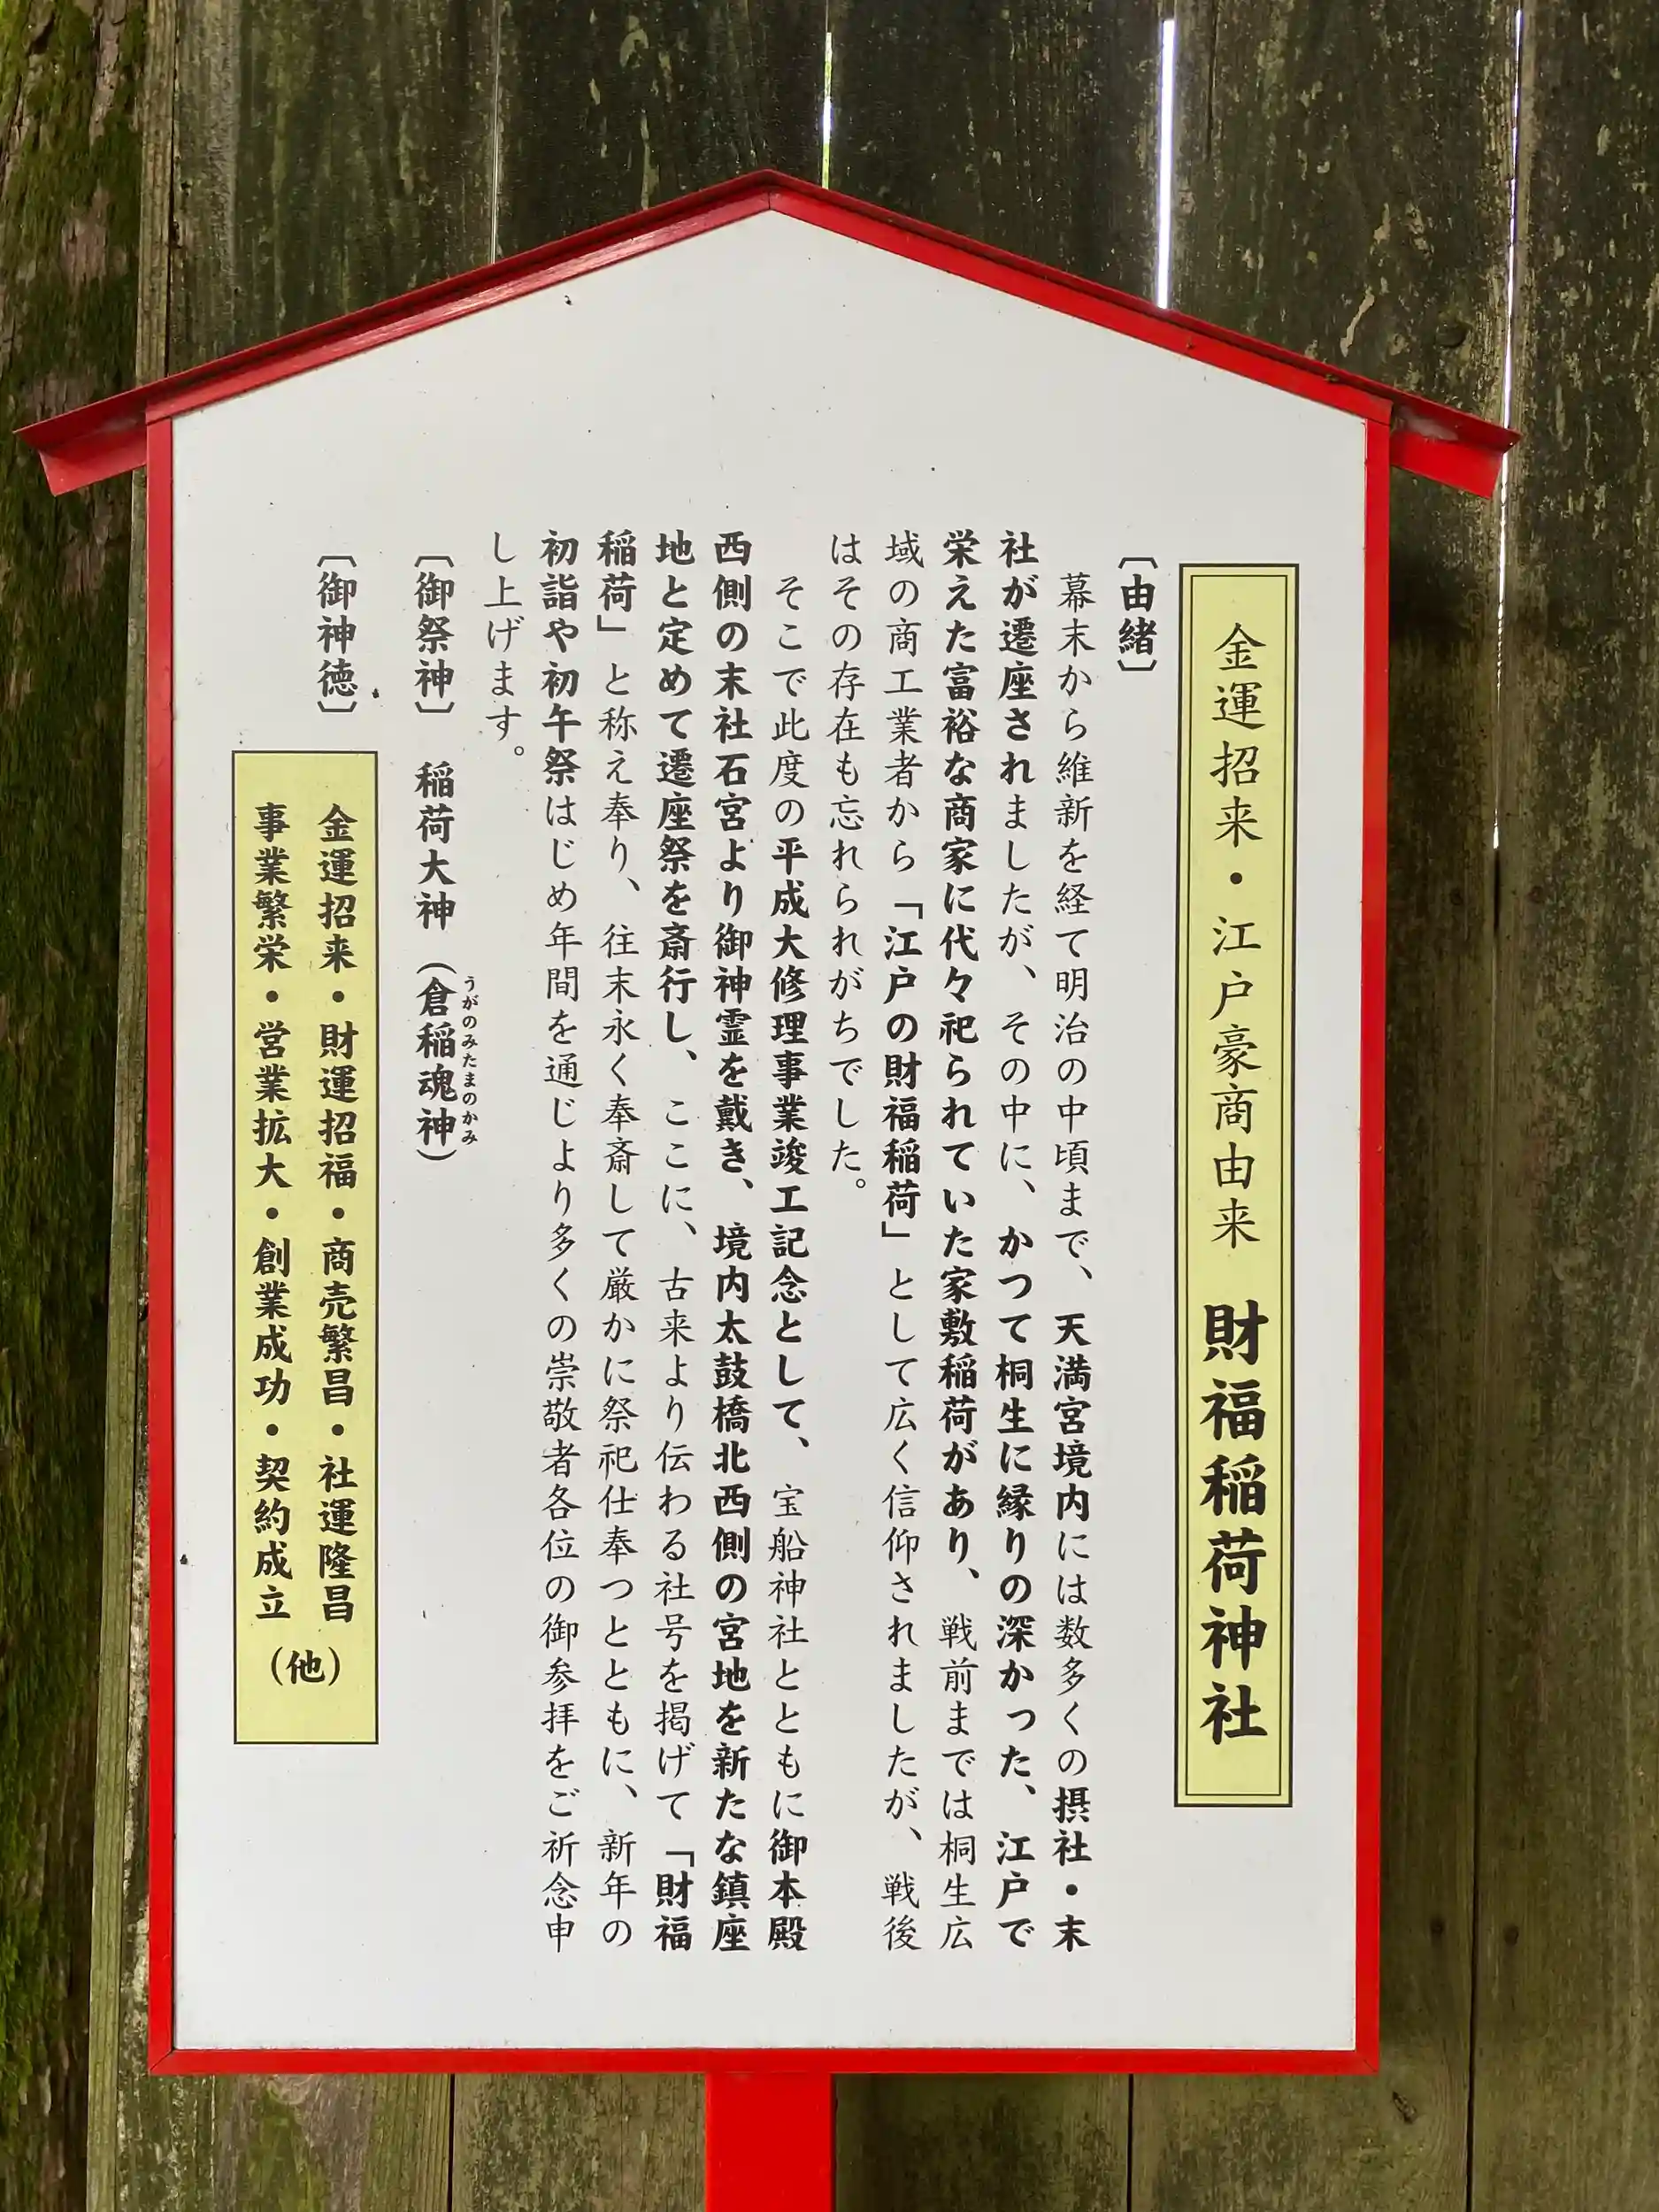 金運招来・江戸豪商由来　財福稲荷神社
〔由緒〕
幕末から維新を経て明治の中頃まで、天満宮境内には数多くの摂社・末
社が遷座されましたが、その中に、かつて桐生に縁りの深かった、江戸で
栄えた富裕な商家に代々祀られていた家敷稲荷があり、戦前までは桐生広
域の商工業者から「江戸の財福稲荷」として広く信仰されましたが、戦後
はその存在も忘れられがちでした。
そこで此度の平成大修理事業竣工記念として、宝船神社とともに御本殿
西側の末社石宮より御神霊を戴き、境内太鼓橋北西側の宮地を新たな鎮座
地と定めて遷座祭を斎行し、ここに、古来より伝わる社号を掲げて「財福
稲荷」と称え奉り、往末永く奉斎して厳かに祭祀仕奉つとともに、新年の
初詣や初午祭はじめ年間を通じより多くの崇敬者各位の御参拝をご祈念申
し上げます。
〔御祭神〕　稲荷大神（倉稲魂神）
うがのみたまのかみ
〔御神徳〕
金運招来・財運招福・商売繁昌・社運隆昌
事業繁栄・営業拡大・創業成功・契約成立
（他）